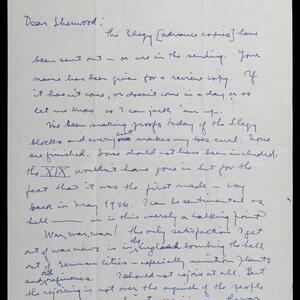 Dear Sherwood:
the Elegy [advance copies] have
been sent out — or are in the sending. Your
name has been given for a review copy. If
it hasn't come, or doesn't come in a day or so
let me know so I can jack 'em up.
I've been making proofs today of the Elegy
blocks and every cut makes my toes curl. None
are finished. Some should not have been included.
the XIX wouldn't have gone in but for the
fact that it was the first made — way
back in May 1926. I can be sentimental as
hell — or is this merely a talking point?
War, war, war! the only satisfaction I get
out of war news is in the England bombing the hell
out of German cities — especially munition plants
I should not rejoice at all. But
the rejoicing is not over the anguish of the people